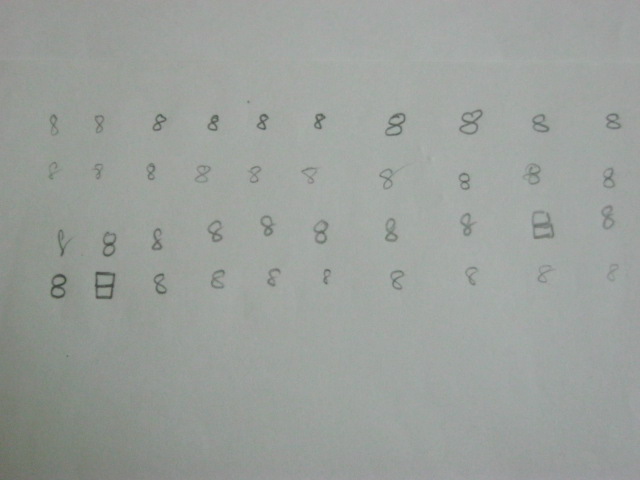 8 8 8 8 8 8 8 8 8 8
8 8 8 8 8 8 8 8 8 8
8 8 8 8 8 8 8 8 8 8
8 8 8 8 8 8 8 8 8 8